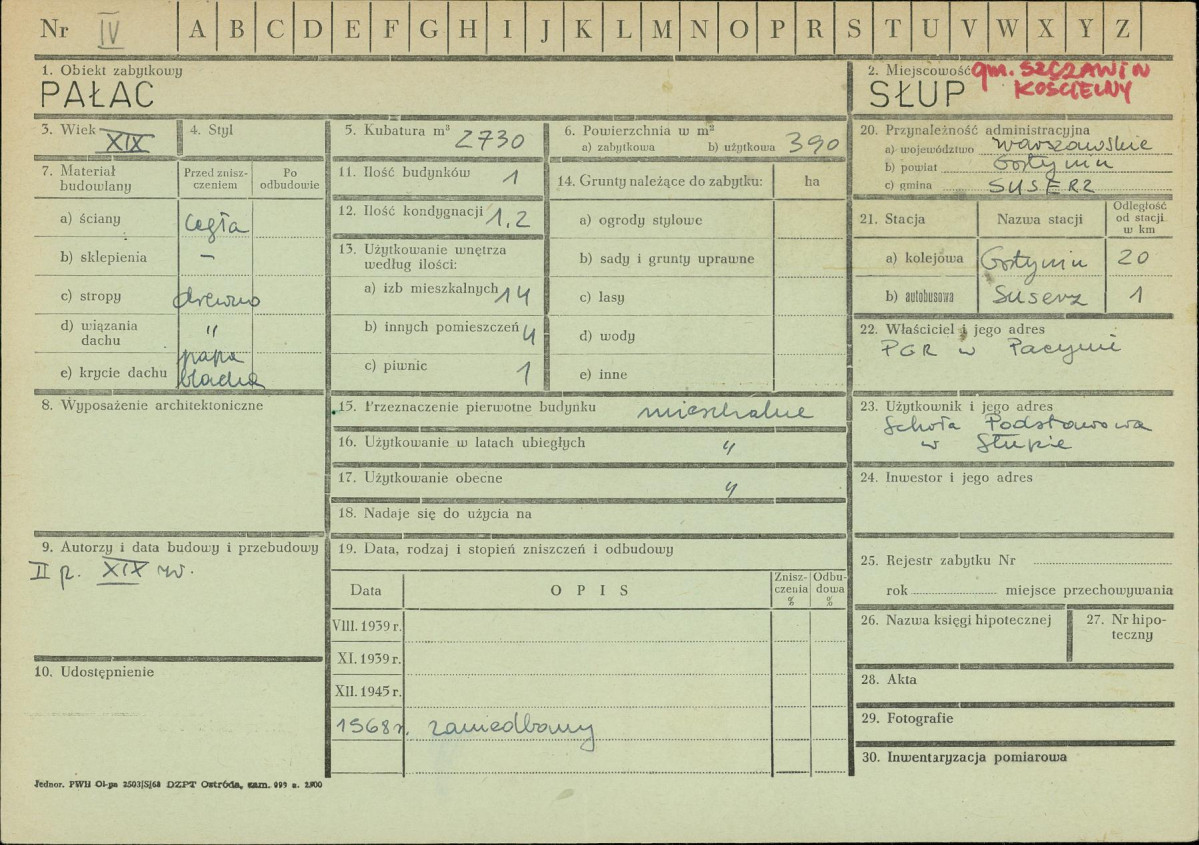 Nr IV A B C D E F G H I J K L M N O P R S T U V W X Y Z
1. Obiekt zabytkowy
PAŁAC
2. Miejscowość gm. SZCZAWIN
KOŚCIELNY
SŁUP
3. Wiek XIX
4. Styl
5. Kubatura m³ 2730
6. Powierzchnia w m²
a) zabytkowa b) użytkowa 390
7. Materiał budowlany
Przed znisz-
czeniem
Po
odbudowie
a) ściany cegła
b) sklepienia –
c) stropy drewno
d) wiązania
dachu "
e) krycie dachu papa
blacha
8. Wyposażenie architektoniczne
9. Autorzy i data budowy i przebudowy
II p. XIX w.
10. Udostępnienie
11. Ilość budynków 1
12. Ilość kondygnacji 1,2
13. Użytkowanie wnętrza
według ilości:
a) izb mieszkalnych 14
b) innych pomieszczeń 4
c) piwnic 1
14. Grunty należące do zabytku: ha
a) ogrody stylowe
b) sady i grunty uprawne
c) lasy
d) wody
e) inne
15. Przeznaczenie pierwotne budynku mieszkalne
16. Użytkowanie w latach ubiegłych "
17. Użytkowanie obecne "
18. Nadaje się do użycia na
19. Data, rodzaj i stopień zniszczeń i odbudowy
Data OPIS Znisz-
czenia
%
Odbu-
dowa
%
VIII. 1939 r.
XI. 1939 r.
XII. 1945 r.
1968 r. zaniedbany
20. Przynależność administracyjna
a) województwo warszawskie
b) powiat Gostynin
c) gmina SUSERZ
21. Stacja Nazwa stacji Odległość
od stacji
w km
a) kolejowa Gostynin 20
b) autobusowa Suserz 1
22. Właściciel i jego adres
PGR w Pacynie
23. Użytkownik i jego adres
Szkoła Podstawowa
w Słupie
24. Inwestor i jego adres
25. Rejestr zabytku Nr
rok miejsce przechowywania
26. Nazwa księgi hipotecznej
27. Nr hipo-
teczny
28. Akta
29. Fotografie
30. Inwentaryzacja pomiarowa
Jednor. PWH Ol-yn 2503/S/68 DZPT Ostróda, zam. 999 n. 2800